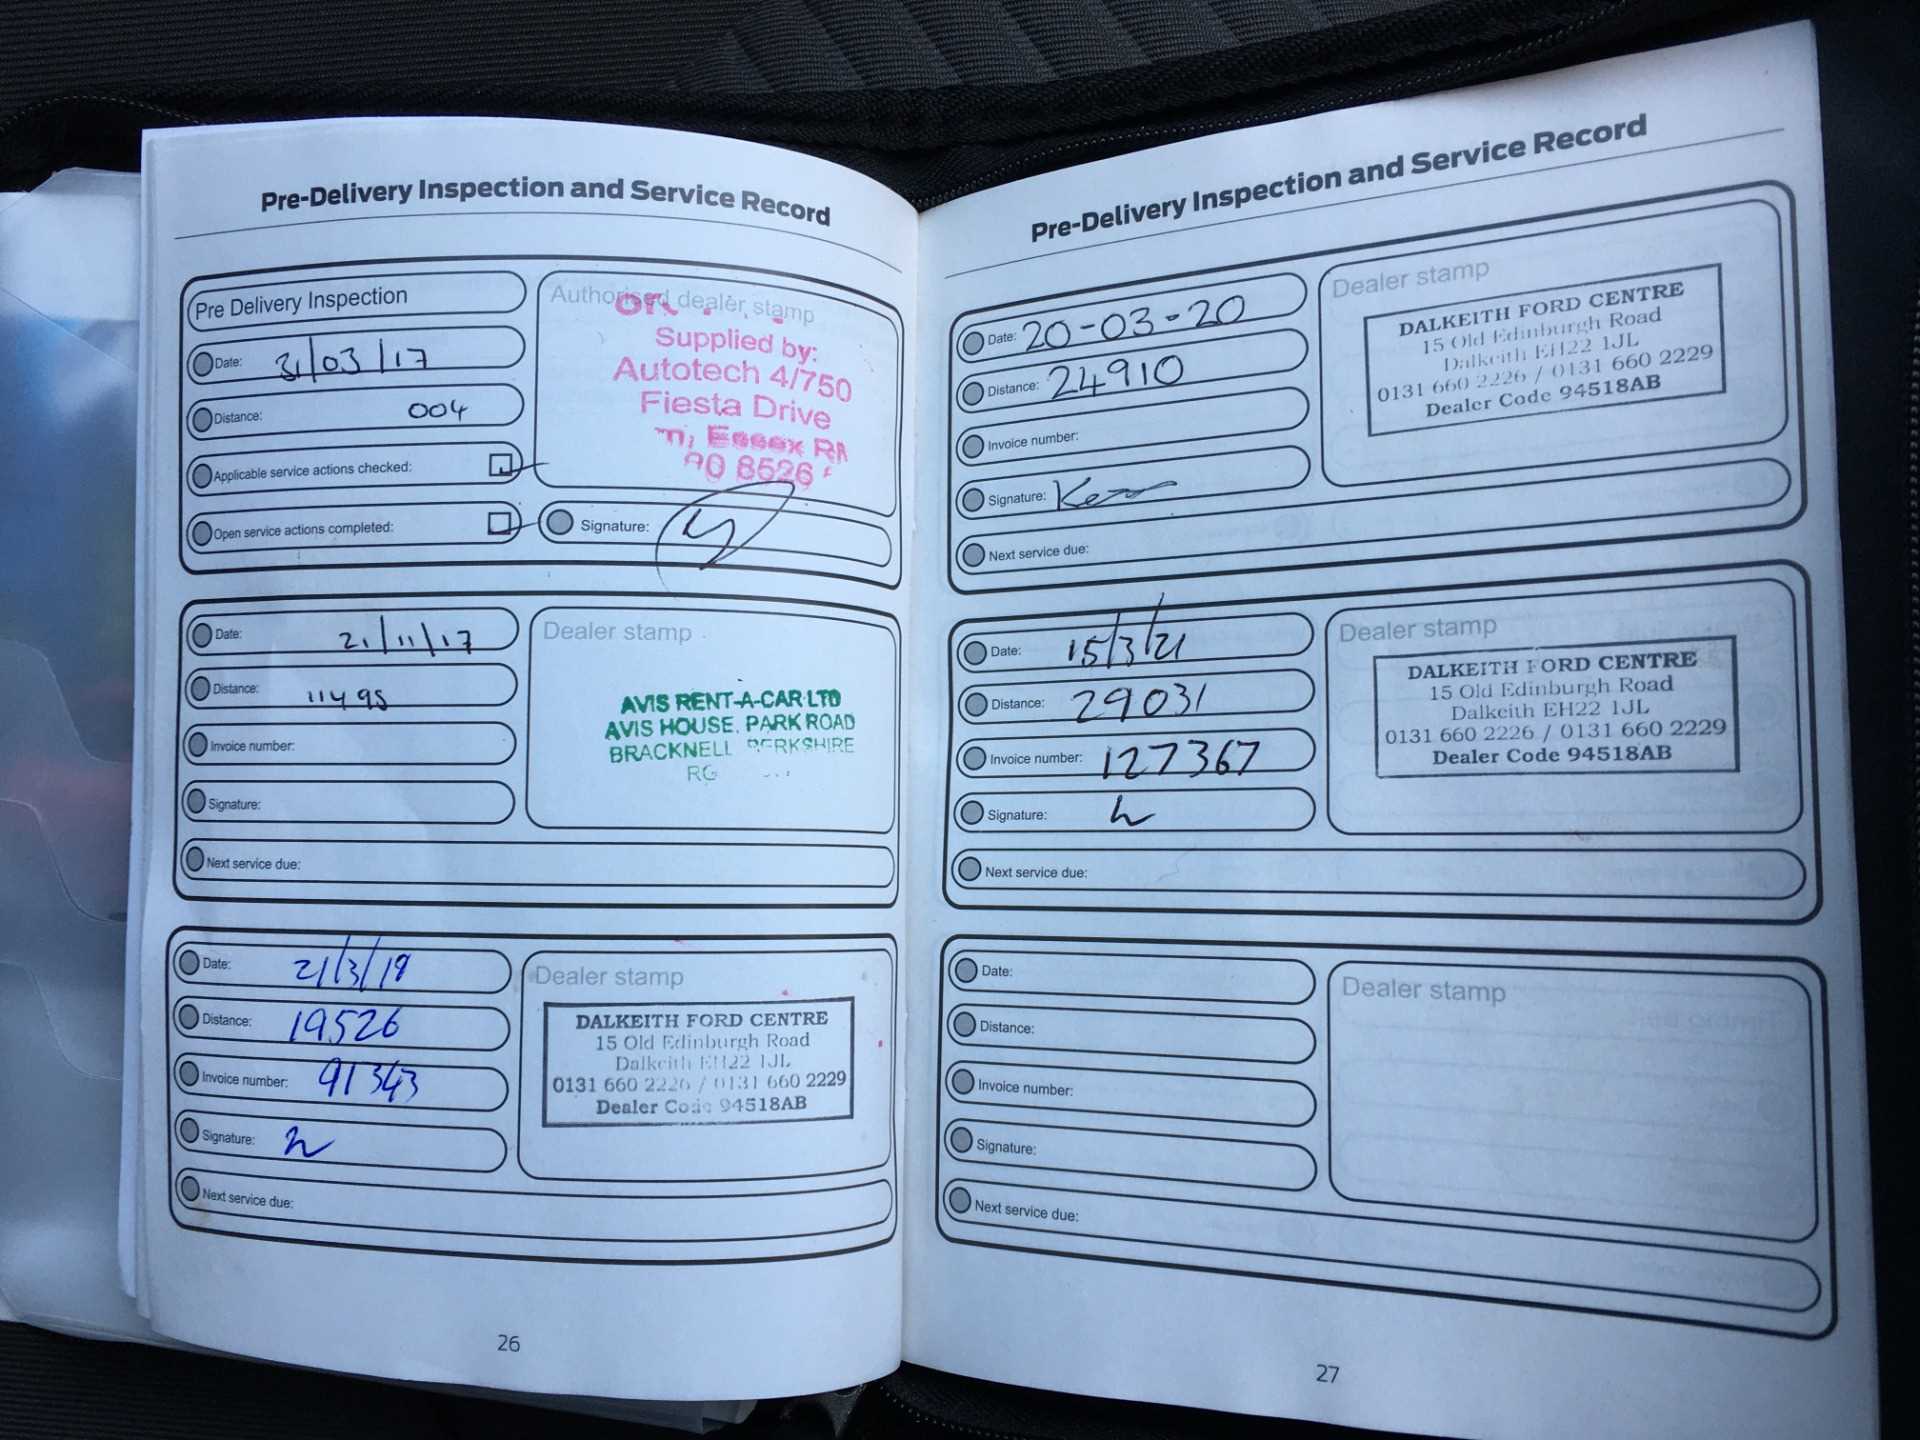 Pre-Delivery Inspection and Service Record
Pre Delivery Inspection
Date: 31/03/17
Distance: 004
Applicable service actions checked:
Open service actions completed:
Authorised dealer stamp
Supplied by:
Autotech 4/750
Fiesta Drive
Essex
8526
Signature:
Date: 21/11/17
Distance: 11495
Invoice number:
Signature:
Next service due:
Dealer stamp
AVIS RENT-A-CAR LTD
AVIS HOUSE, PARK ROAD
BRACKNELL BERKSHIRE
RG
Date: 21/3/19
Distance: 19526
Invoice number: 91343
Signature:
Next service due:
Dealer stamp
DALKEITH FORD CENTRE
15 Old Edinburgh Road
Dalkeith EH22 1JL
0131 660 2226 / 0131 660 2229
Dealer Code 94518AB
26
Pre-Delivery Inspection and Service Record
Date: 20-03-20
Distance: 24910
Invoice number:
Signature:
Next service due:
Dealer stamp
DALKEITH FORD CENTRE
15 Old Edinburgh Road
Dalkeith EH22 1JL
0131 660 2226 / 0131 660 2229
Dealer Code 94518AB
Date: 15/3/21
Distance: 29031
Invoice number: 127367
Signature:
Next service due:
Dealer stamp
DALKEITH FORD CENTRE
15 Old Edinburgh Road
Dalkeith EH22 1JL
0131 660 2226 / 0131 660 2229
Dealer Code 94518AB
Date:
Distance:
Invoice number:
Signature:
Next service due:
Dealer stamp
27